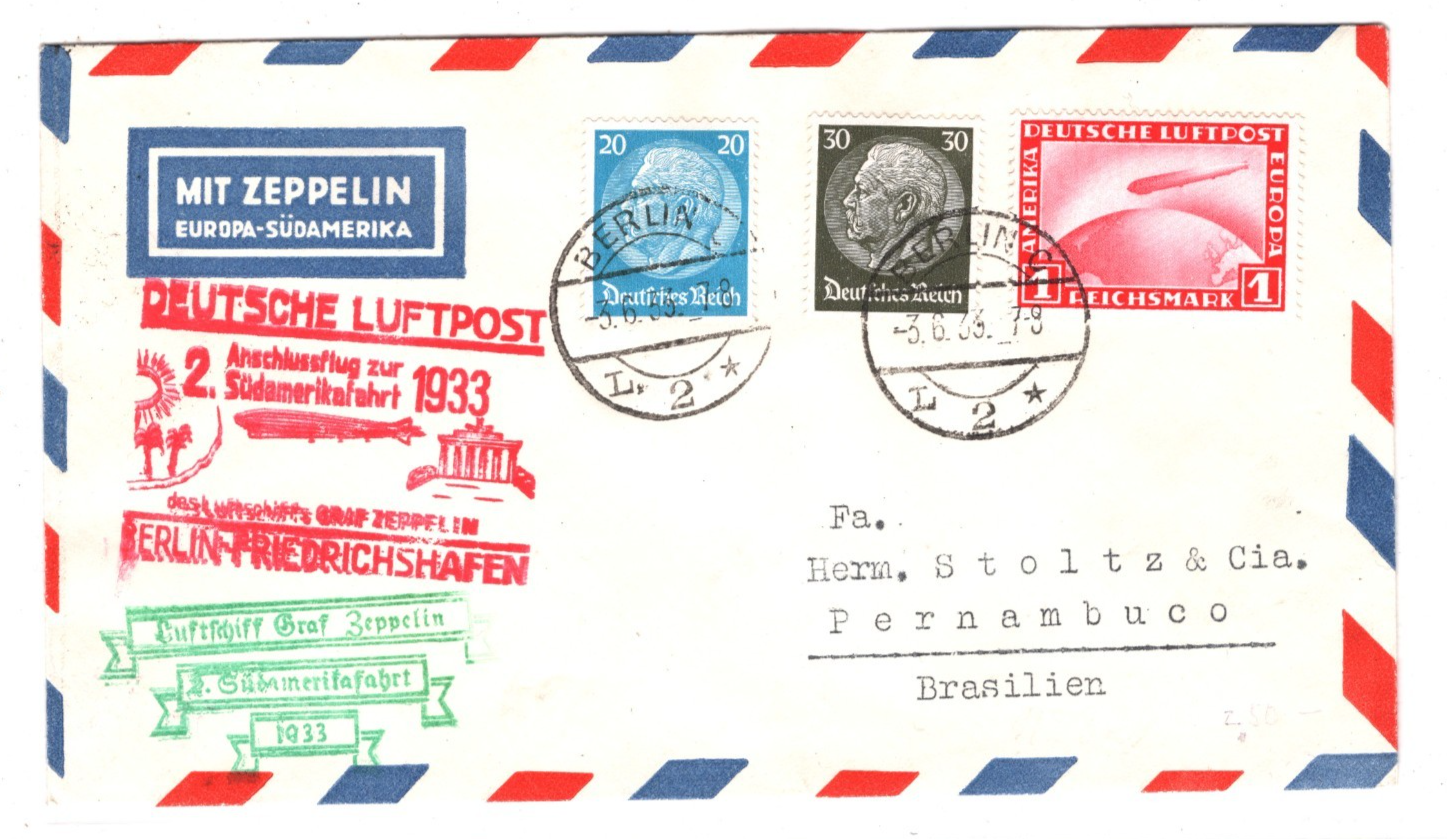 MIT ZEPPELIN
EUROPA-SÜDAMERIKA
20 20
Deutsches Reich
30 30
Deutsches Reich
DEUTSCHE LUFTPOST
AMERIKA
EUROPA
1 REICHSMARK 1
BERLIN
-3.6.33. 7-8
L 2 *
BERLIN C
-3.6.33. 7-8
L 2 *
DEUTSCHE LUFTPOST
2. Anschlussflug zur
Südamerikafahrt 1933
des Luftschiffs GRAF ZEPPELIN
BERLIN-FRIEDRICHSHAFEN
Luftschiff Graf Zeppelin
2. Südamerikafahrt
1933
Fa.
Herm. Stoltz & Cia.
Pernambuco
Brasilien